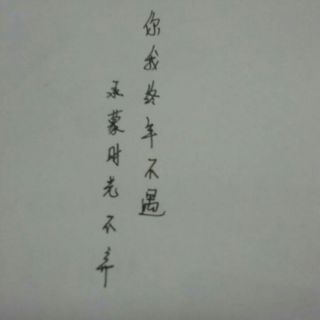 你我终年不遇
承蒙时光不弃